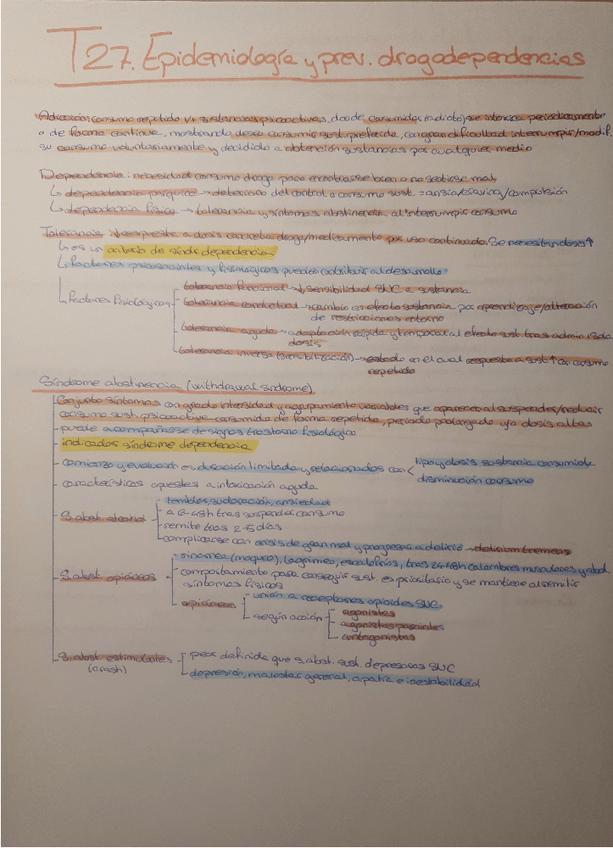 T27. Epidemiología y prev. drogodependencias
Adicción: consumo repetido 1/+ sustancias psicoactivas, donde consumidor (adicto) se intoxica periódicamente
o de forma continua, mostrando deseo consumir sust. preferida, con gran dificultad interrumpir/modif.
su consumo voluntariamente y decidido a obtención sustancias por cualquier medio
Dependencia: necesidad consumo droga para encontrarse bien o no sentirse mal
↳ dependencia psíquica → deterioro del control s consumo sust. = ansia/craving/compulsión
↳ dependencia física → tolerancia y síntomas abstinencia al interrumpir consumo
Tolerancia: ↓respuesta a dosis concreta droga/medicamento por uso continuado. Se necesitan dosis↑
↳ es un criterio de sindr. dependencia
↳ Factores psicosociales y fisiológicos pueden contribuir al desarrollo
↳ Factores fisiológicos
tolerancia funcional → ↓sensibilidad SNC a sustancia
tolerancia conductual → cambio en efecto sustancia por aprendizaje/alteración
de restricciones entorno
tolerancia aguda → adaptación rápida y temporal al efecto sust. tras admin. 1 sola
dosis
tolerancia inversa (sensibilización) → estado en el cual respuesta a sust ↑ con consumo
repetido
Síndrome abstinencia (withdrawal sindrome)
Conjunto síntomas con grado intensidad y agrupamiento variables que aparecen al suspender/reducir
consumo sust. psicoactiva consumida de forma repetida, periodo prolongado y/o dosis altas
puede acompañarse de signos trastorno fisiológico
indicador síndrome dependencia
comienzo y evolución en duración limitada y relacionados con < tipo y dosis sustancia consumida
disminución consumo
características opuestas a intoxicación aguda
S. abst. alcohol
temblor, sudoración, ansiedad
a 6-48h tras suspender consumo
remite tras 2-5 días
complicarse con crisis de gran mal y progresar a delirio → delirium tremens
S. abst. opiáceos
rinorrea (moqueo), lagrimeo, escalofríos, tras 24-48h calambres musculares y abd.
comportamiento para conseguir sust. es prioritario y se mantiene al remitir
síntomas físicos
opiáceos
unión a receptores opioides SNC
según acción
agonistas
agonistas parciales
antagonistas
S. abst. estimulantes
(crash)
peor definida que s. abst. sust. depresoras SNC
depresión, malestar general, apatía e inestabilidad